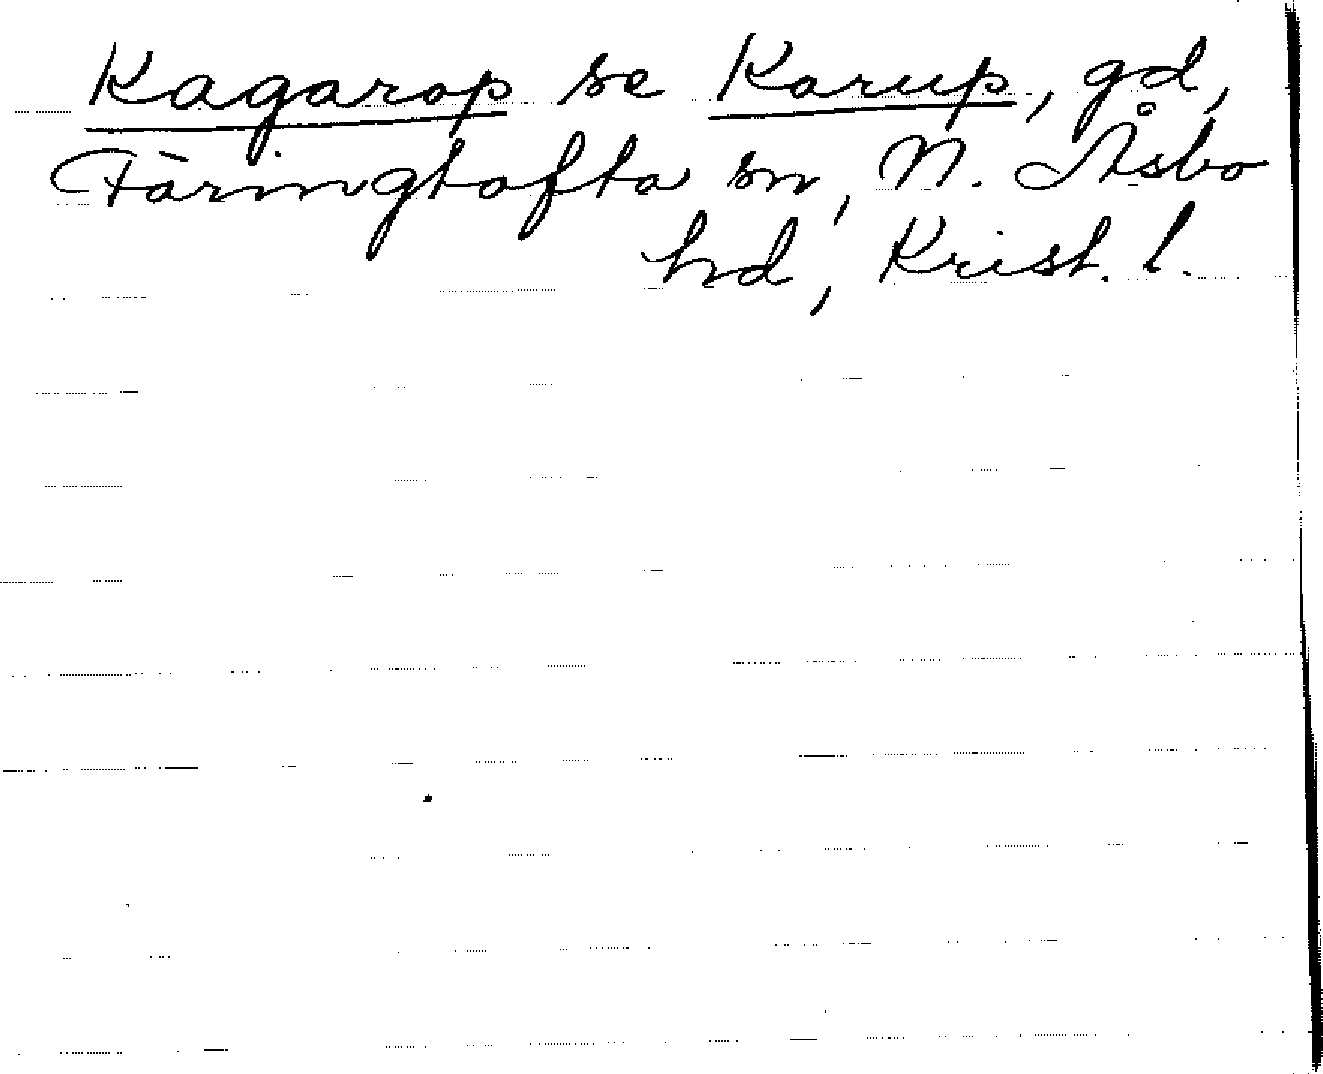 Kagarap se Karup, gd,
Färingtofta sn, N. Åsbo
hd, Krist. l.